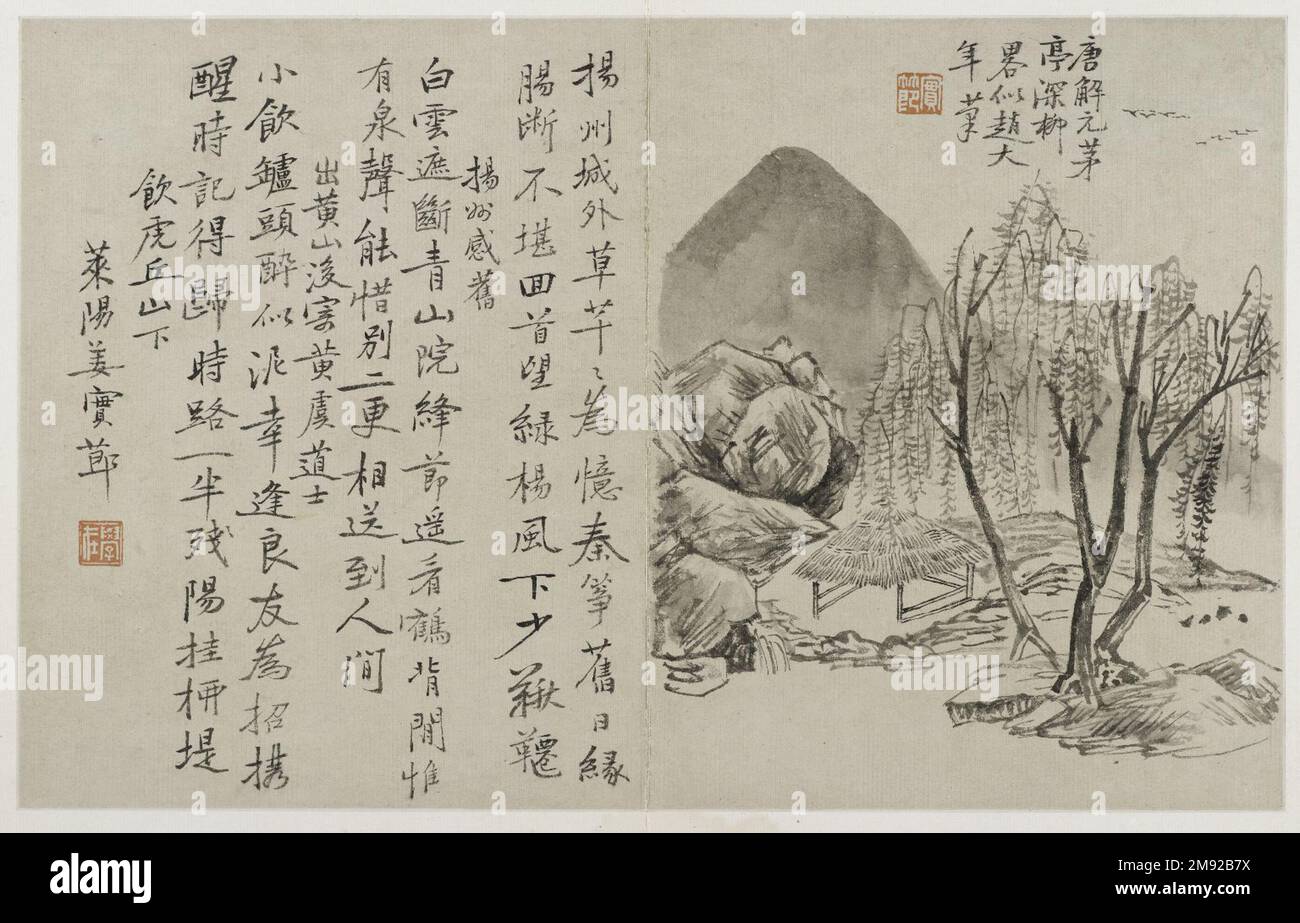 唐解元茅
亭深柳
畧似趙大
年筆
實節
揚州城外草芊〻為憶秦箏舊日緣
腸斷不堪回首望緑楊風下少鞦韆
揚州感舊
白雲遮斷青山院絳節遥看鶴背閒惟
有泉聲能惜別二更相送到人間
出黄山後寄黄虞道士
小飲鑪頭醉似泥幸逢良友為招携
醒時記得歸時路一半殘陽挂栁堤
飲虎丘山下
萊陽姜實莭
學在
alamy
alamy
alamy
Image ID: 2M92B7X
www.alamy.com